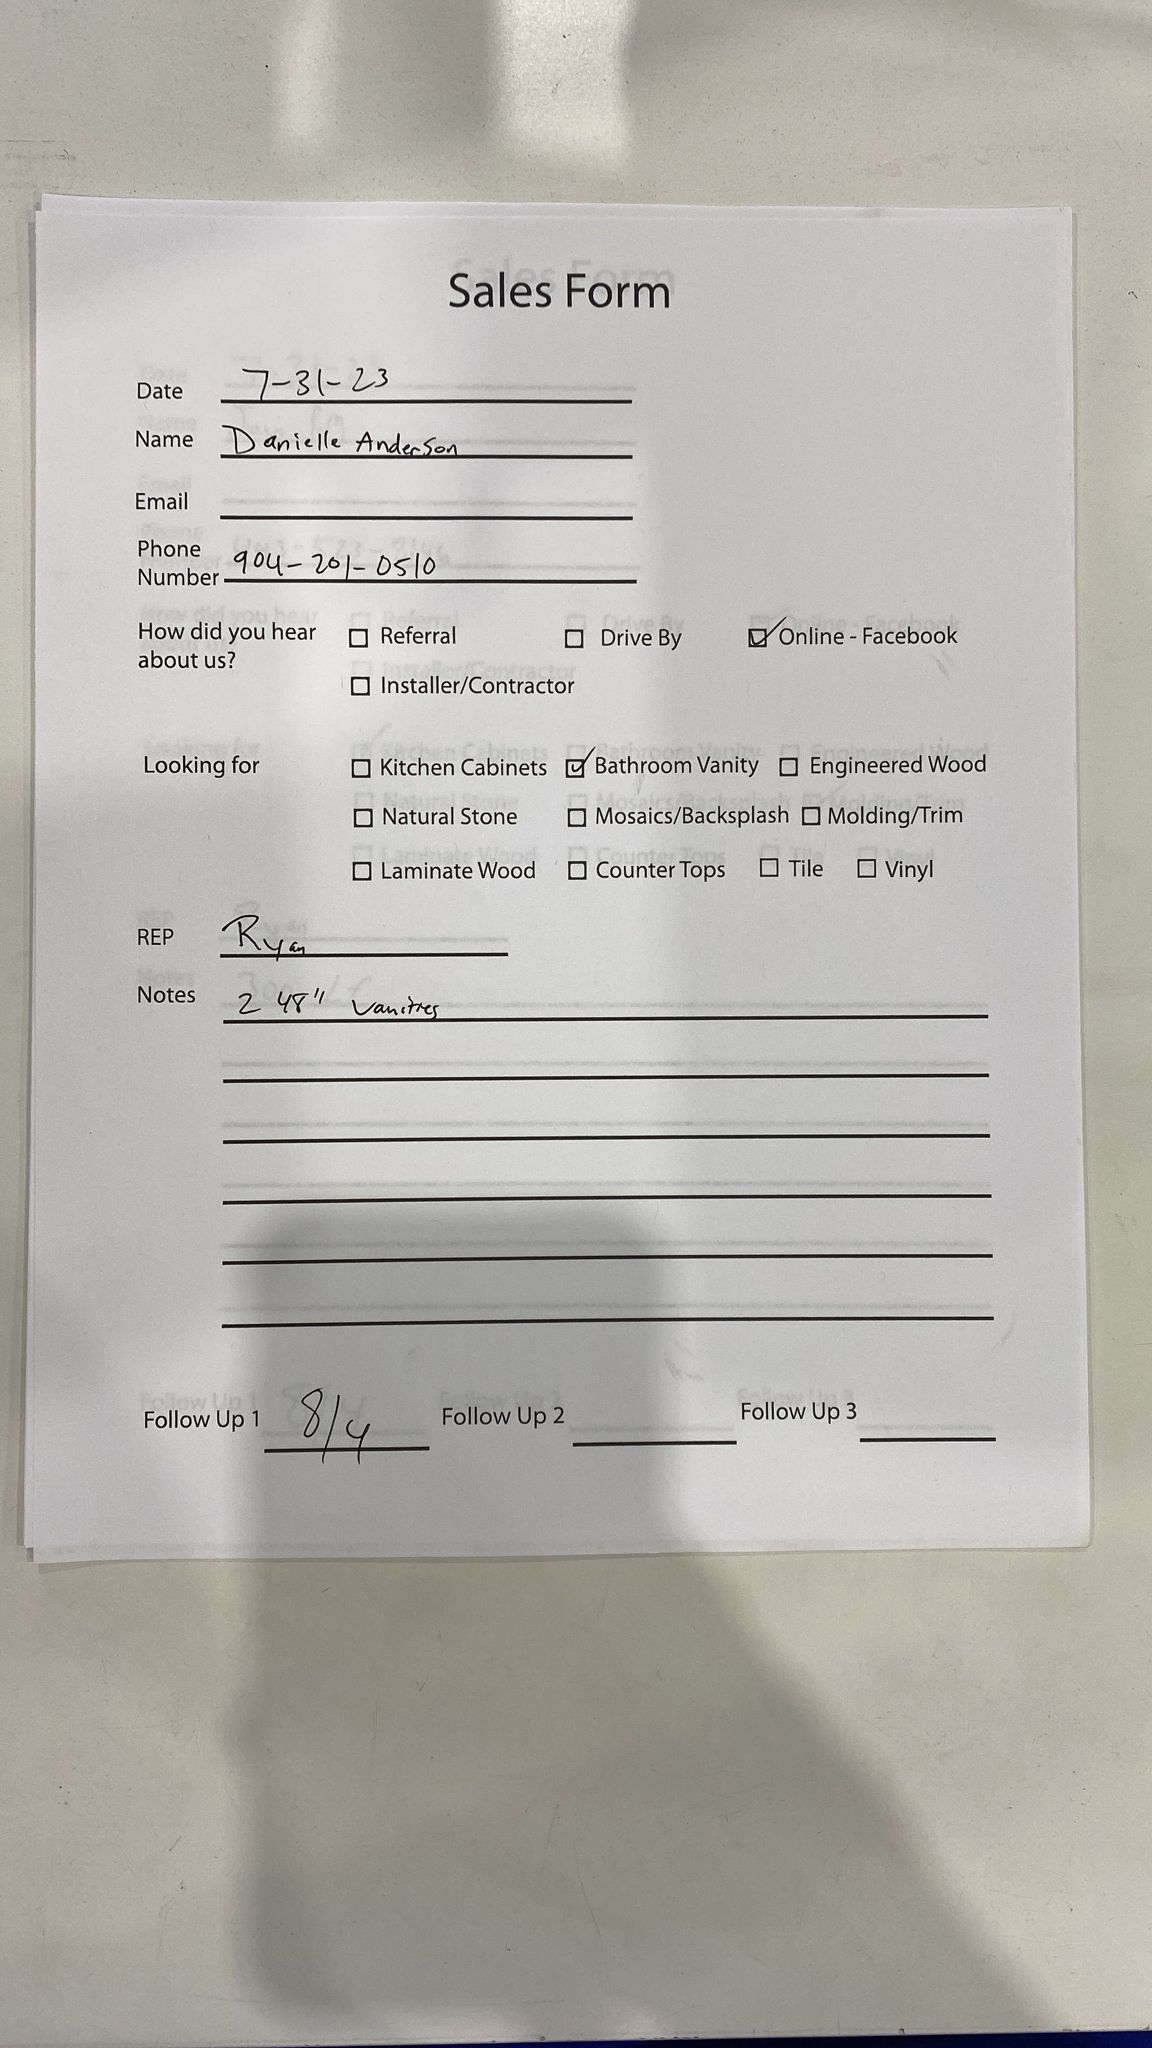 Sales Form
Date 7-31-23
Name Danielle Anderson
Email
Phone
Number 904-201-0510
How did you hear about us? ☐ Referral ☐ Drive By ☑ Online - Facebook
☐ Installer/Contractor
Looking for ☐ Kitchen Cabinets ☑ Bathroom Vanity ☐ Engineered Wood
☐ Natural Stone ☐ Mosaics/Backsplash ☐ Molding/Trim
☐ Laminate Wood ☐ Counter Tops ☐ Tile ☐ Vinyl
REP Ryan
Notes 2 48" Vanities
Follow Up 1 8/4 Follow Up 2 Follow Up 3